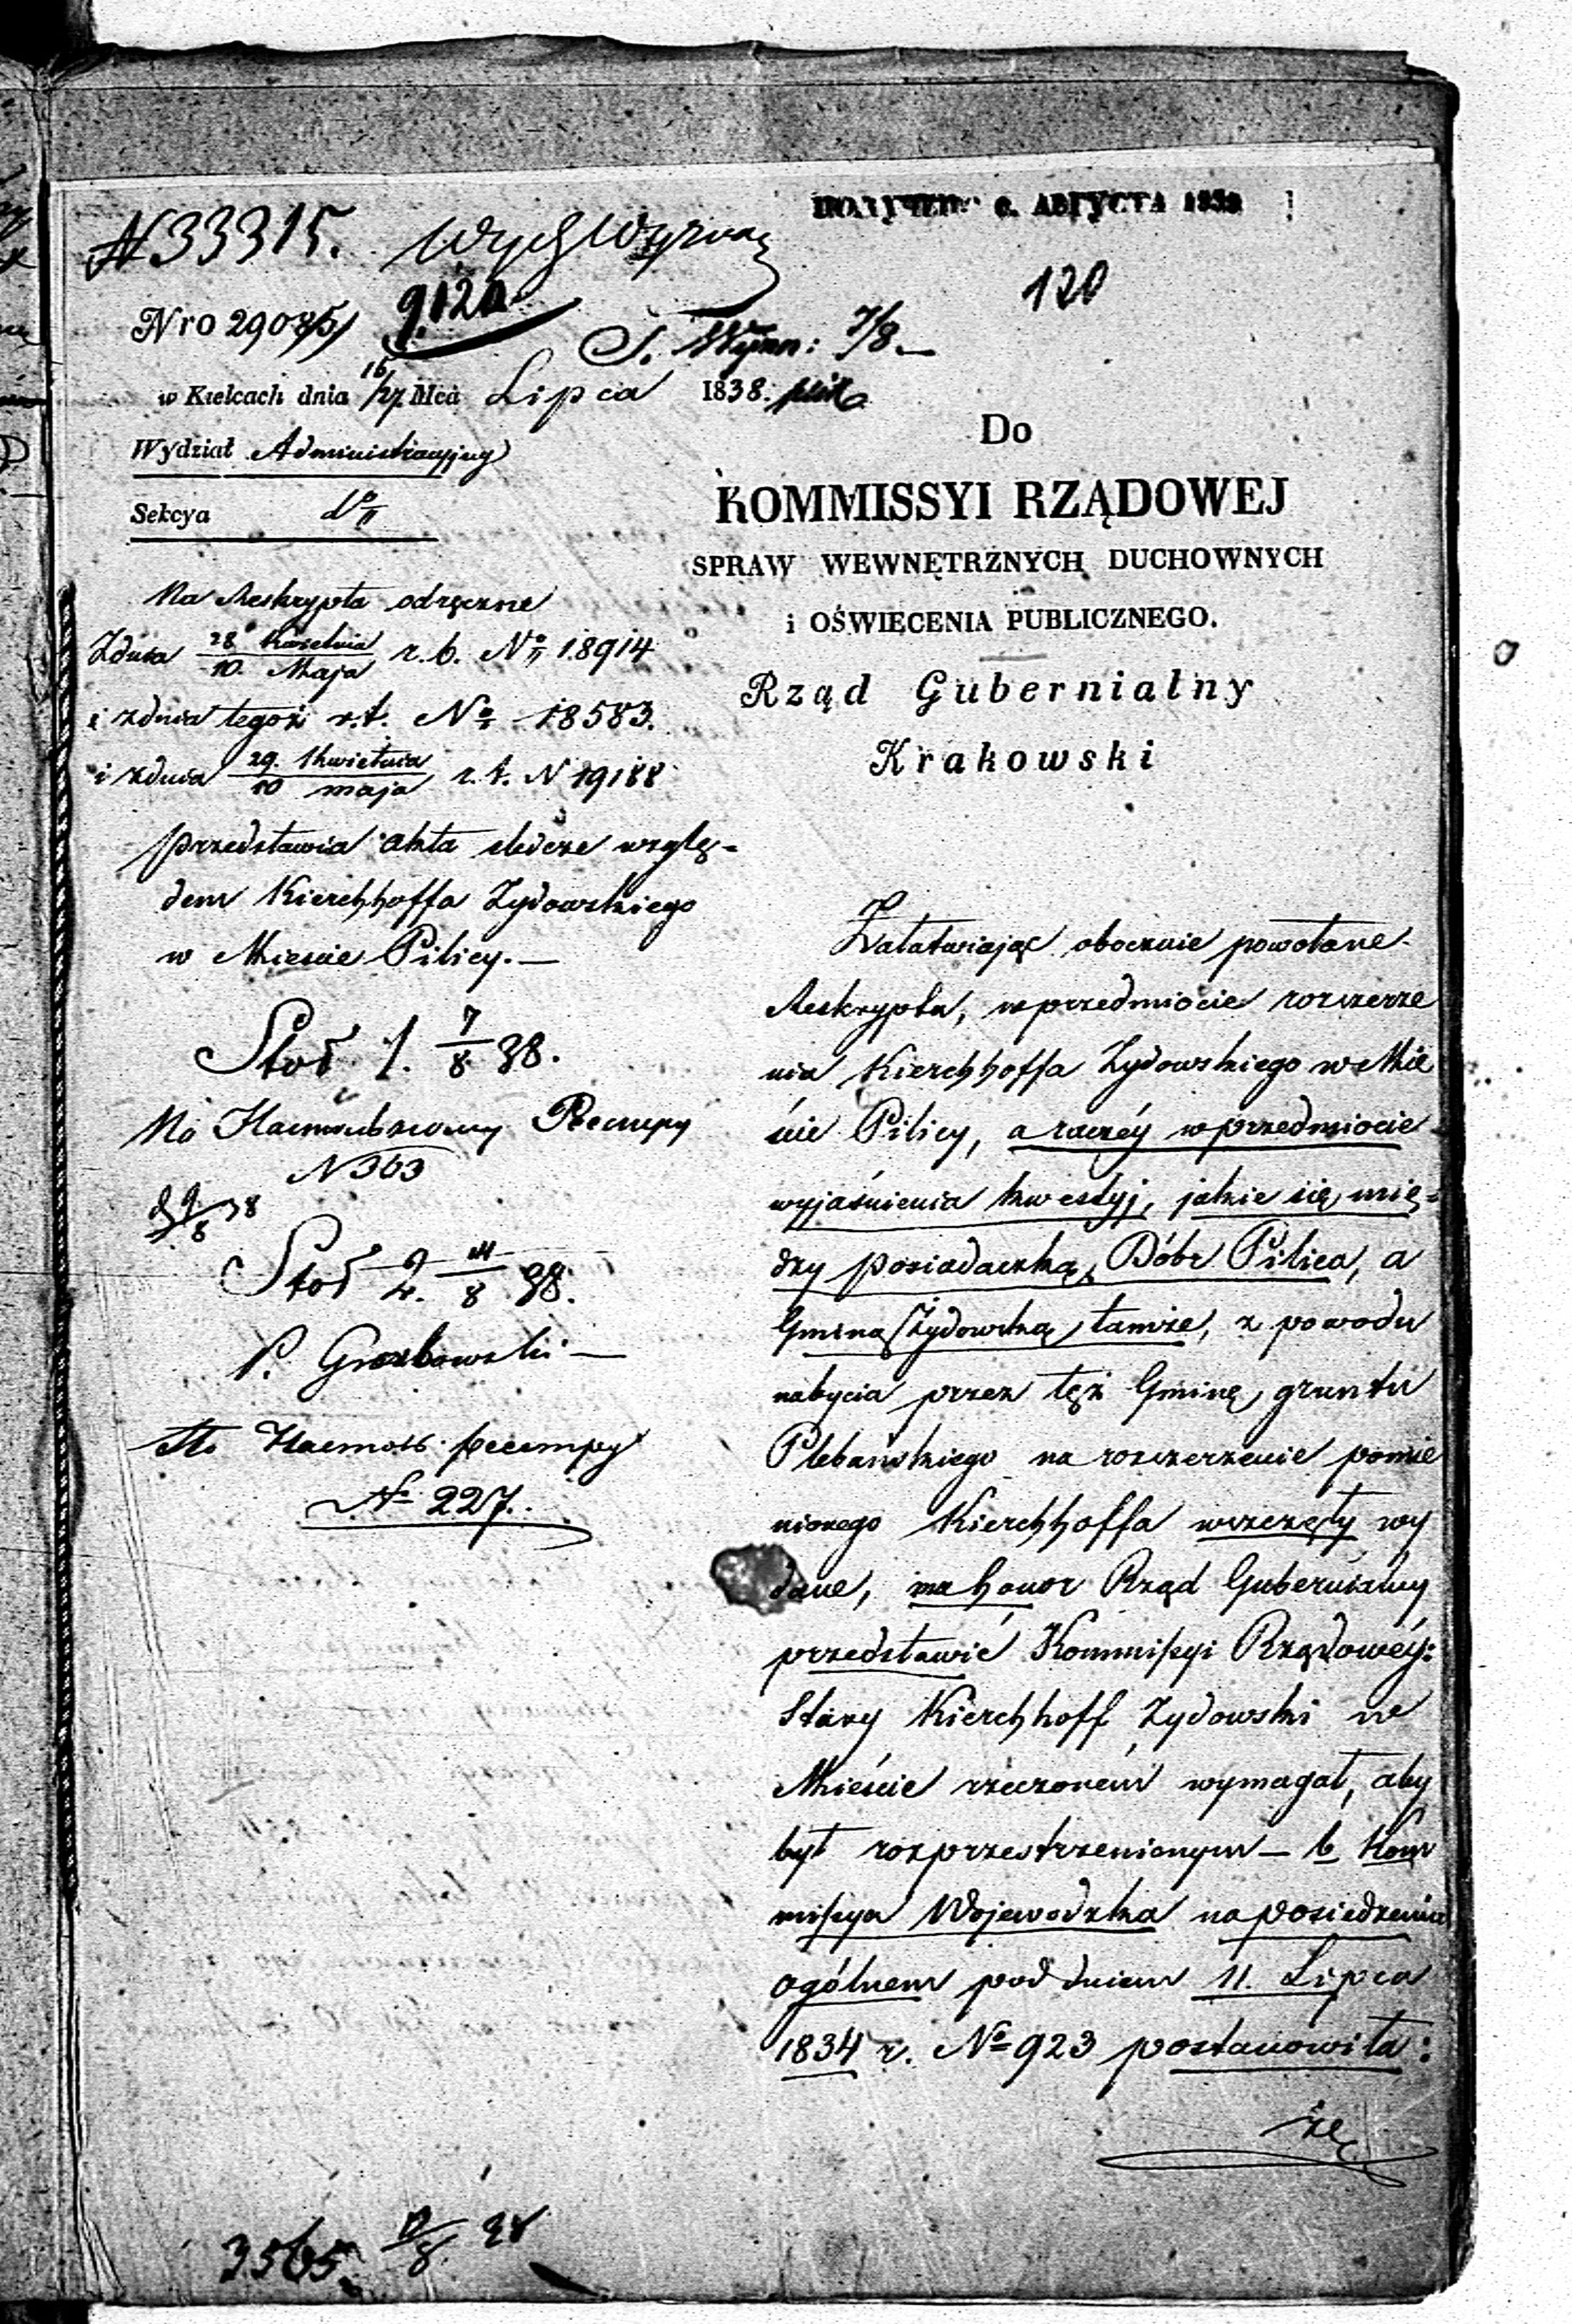 ПОЛУЧЕНО 6. АВГУСТА 1838
N 33315.
120
Nro 29085/
9120
7/8
w Kielcach dnia 15/27 Mca Lipca 1838.
Do
Wydział Administracyjny
KOMMISSYI RZĄDOWEJ
Sekcya
SPRAW WEWNĘTRZNYCH DUCHOWNYCH
i OŚWIĘCENIA PUBLICZNEGO.
Rząd Gubernialny
Krakowski
Na Reskrypta odręczne
Zdnia 28 Kwietnia / 10. Maja r. b. No 18914
i zdnia tegoż r. t. No 18583.
i zdnia 29. Kwietnia / 10 maja r. t. N 19188
przedstawia akta śledcze wzglę-
dem Kierchhoffa Żydowskiego
w Mieście Pilicy.—
7/8 38.
N 363
9/8 38
8 38.
P. Grozbowski —
No 227.
Załatwiając obocznie powołane
Reskrypta, w przedmiocie rozszerze
nia Kierchhoffa Żydowskiego w Mie
ście Pilicy, a raczéy w przedmiocie
wyjaśnienia kwestyj, jakie się mię-
dzy posiadaczką Dóbr Pilica, a
Gminą Żydowską tamże, z powodu
nabycia przez tęż Gminę, gruntu
Plebańskiego na rozszerzenie pomie
nionego Kierchhoffa wszczęły wy
dane, ma honor Rząd Gubernialny
przedstawić Kommissyi Rządowéy:
Stary Kierchhoff Żydowski w
Mieście rzeczoném wymagał, aby
był rozprzestrzenionym — b. Kom
missya Wojewódzka na posiedzeniu
ogólnem pod dniem 11. Lipca
1834 r. No 923 postanowiła:
że
3565. 8 38